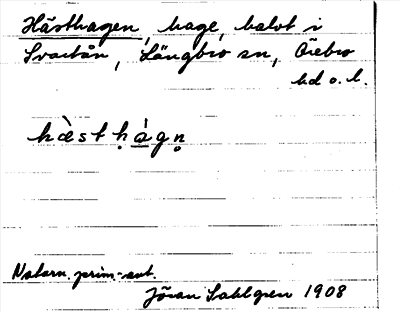 Hästhagen, hage, halvt i
Svartån, Längbro sn, Örebro
hd o. l.
hæ̀stḥàgṇ
Naturn. prim.-ant.
Jöran Sahlgren 1908